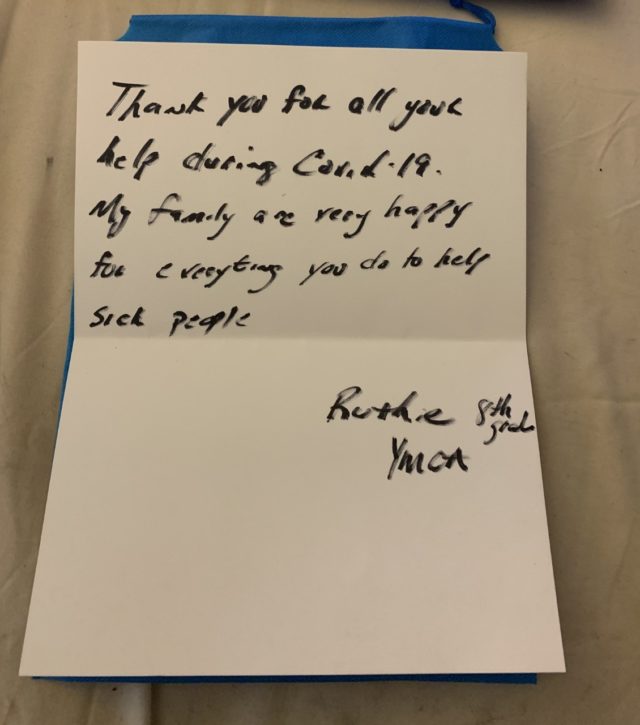 Thank you for all your
help during Covid-19.
My family are very happy
for everyting you do to help
sick people
Ruthie 8th
grade
YMCA